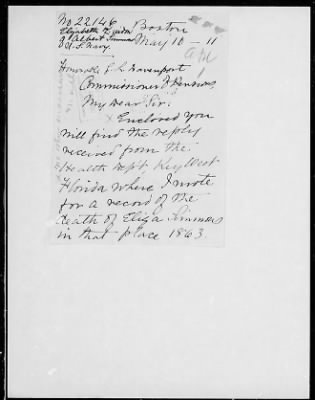 No 22146
Elizabeth F.
of Albert Simmons
U.S. Navy.
Boston
May 10 - 11
Honorable J. L. Davenport
Commissioner of Pensions,
My Dear Sir:
Enclosed you
will find the reply
received from the
Health Dept, Key West
Florida where I wrote
for a record of the
death of Eliza Simmons
in that place 1863.